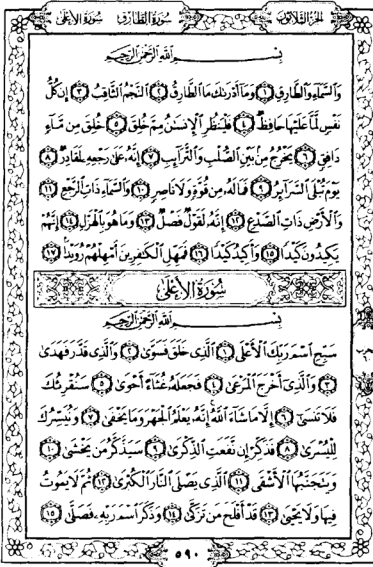 الجزء الثلاثون سورة الطارق سورة الأعلى
بِسْمِ اللَّهِ الرَّحْمَٰنِ الرَّحِيمِ
وَالسَّمَاءِ وَالطَّارِقِ ١ وَمَا أَدْرَىٰكَ مَا الطَّارِقُ ٢ النَّجْمُ الثَّاقِبُ ٣ إِن كُلُّ
نَفْسٍ لَّمَّا عَلَيْهَا حَافِظٌ ٤ فَلْيَنظُرِ الْإِنسَٰنُ مِمَّ خُلِقَ ٥ خُلِقَ مِن مَّاءٍ
دَافِقٍ ٦ يَخْرُجُ مِن بَيْنِ الصُّلْبِ وَالتَّرَائِبِ ٧ إِنَّهُ عَلَىٰ رَجْعِهِ لَقَادِرٌ ٨
يَوْمَ تُبْلَى السَّرَائِرُ ٩ فَمَا لَهُ مِن قُوَّةٍ وَلَا نَاصِرٍ ١٠ وَالسَّمَاءِ ذَاتِ الرَّجْعِ ١١
وَالْأَرْضِ ذَاتِ الصَّدْعِ ١٢ إِنَّهُ لَقَوْلٌ فَصْلٌ ١٣ وَمَا هُوَ بِالْهَزْلِ ١٤ إِنَّهُمْ
يَكِيدُونَ كَيْدًا ١٥ وَأَكِيدُ كَيْدًا ١٦ فَمَهِّلِ الْكَٰفِرِينَ أَمْهِلْهُمْ رُوَيْدًا ١٧
سُورَةُ الأَعْلَى
بِسْمِ اللَّهِ الرَّحْمَٰنِ الرَّحِيمِ
سَبِّحِ اسْمَ رَبِّكَ الْأَعْلَى ١ الَّذِي خَلَقَ فَسَوَّىٰ ٢ وَالَّذِي قَدَّرَ فَهَدَىٰ
٣ وَالَّذِي أَخْرَجَ الْمَرْعَىٰ ٤ فَجَعَلَهُ غُثَاءً أَحْوَىٰ ٥ سَنُقْرِئُكَ
فَلَا تَنسَىٰ ٦ إِلَّا مَا شَاءَ اللَّهُ إِنَّهُ يَعْلَمُ الْجَهْرَ وَمَا يَخْفَىٰ ٧ وَنُيَسِّرُكَ
لِلْيُسْرَىٰ ٨ فَذَكِّرْ إِن نَّفَعَتِ الذِّكْرَىٰ ٩ سَيَذَّكَّرُ مَن يَخْشَىٰ ١٠
وَيَتَجَنَّبُهَا الْأَشْقَى ١١ الَّذِي يَصْلَى النَّارَ الْكُبْرَىٰ ١٢ ثُمَّ لَا يَمُوتُ
فِيهَا وَلَا يَحْيَىٰ ١٣ قَدْ أَفْلَحَ مَن تَزَكَّىٰ ١٤ وَذَكَرَ اسْمَ رَبِّهِ فَصَلَّىٰ ١٥
٥٩٠